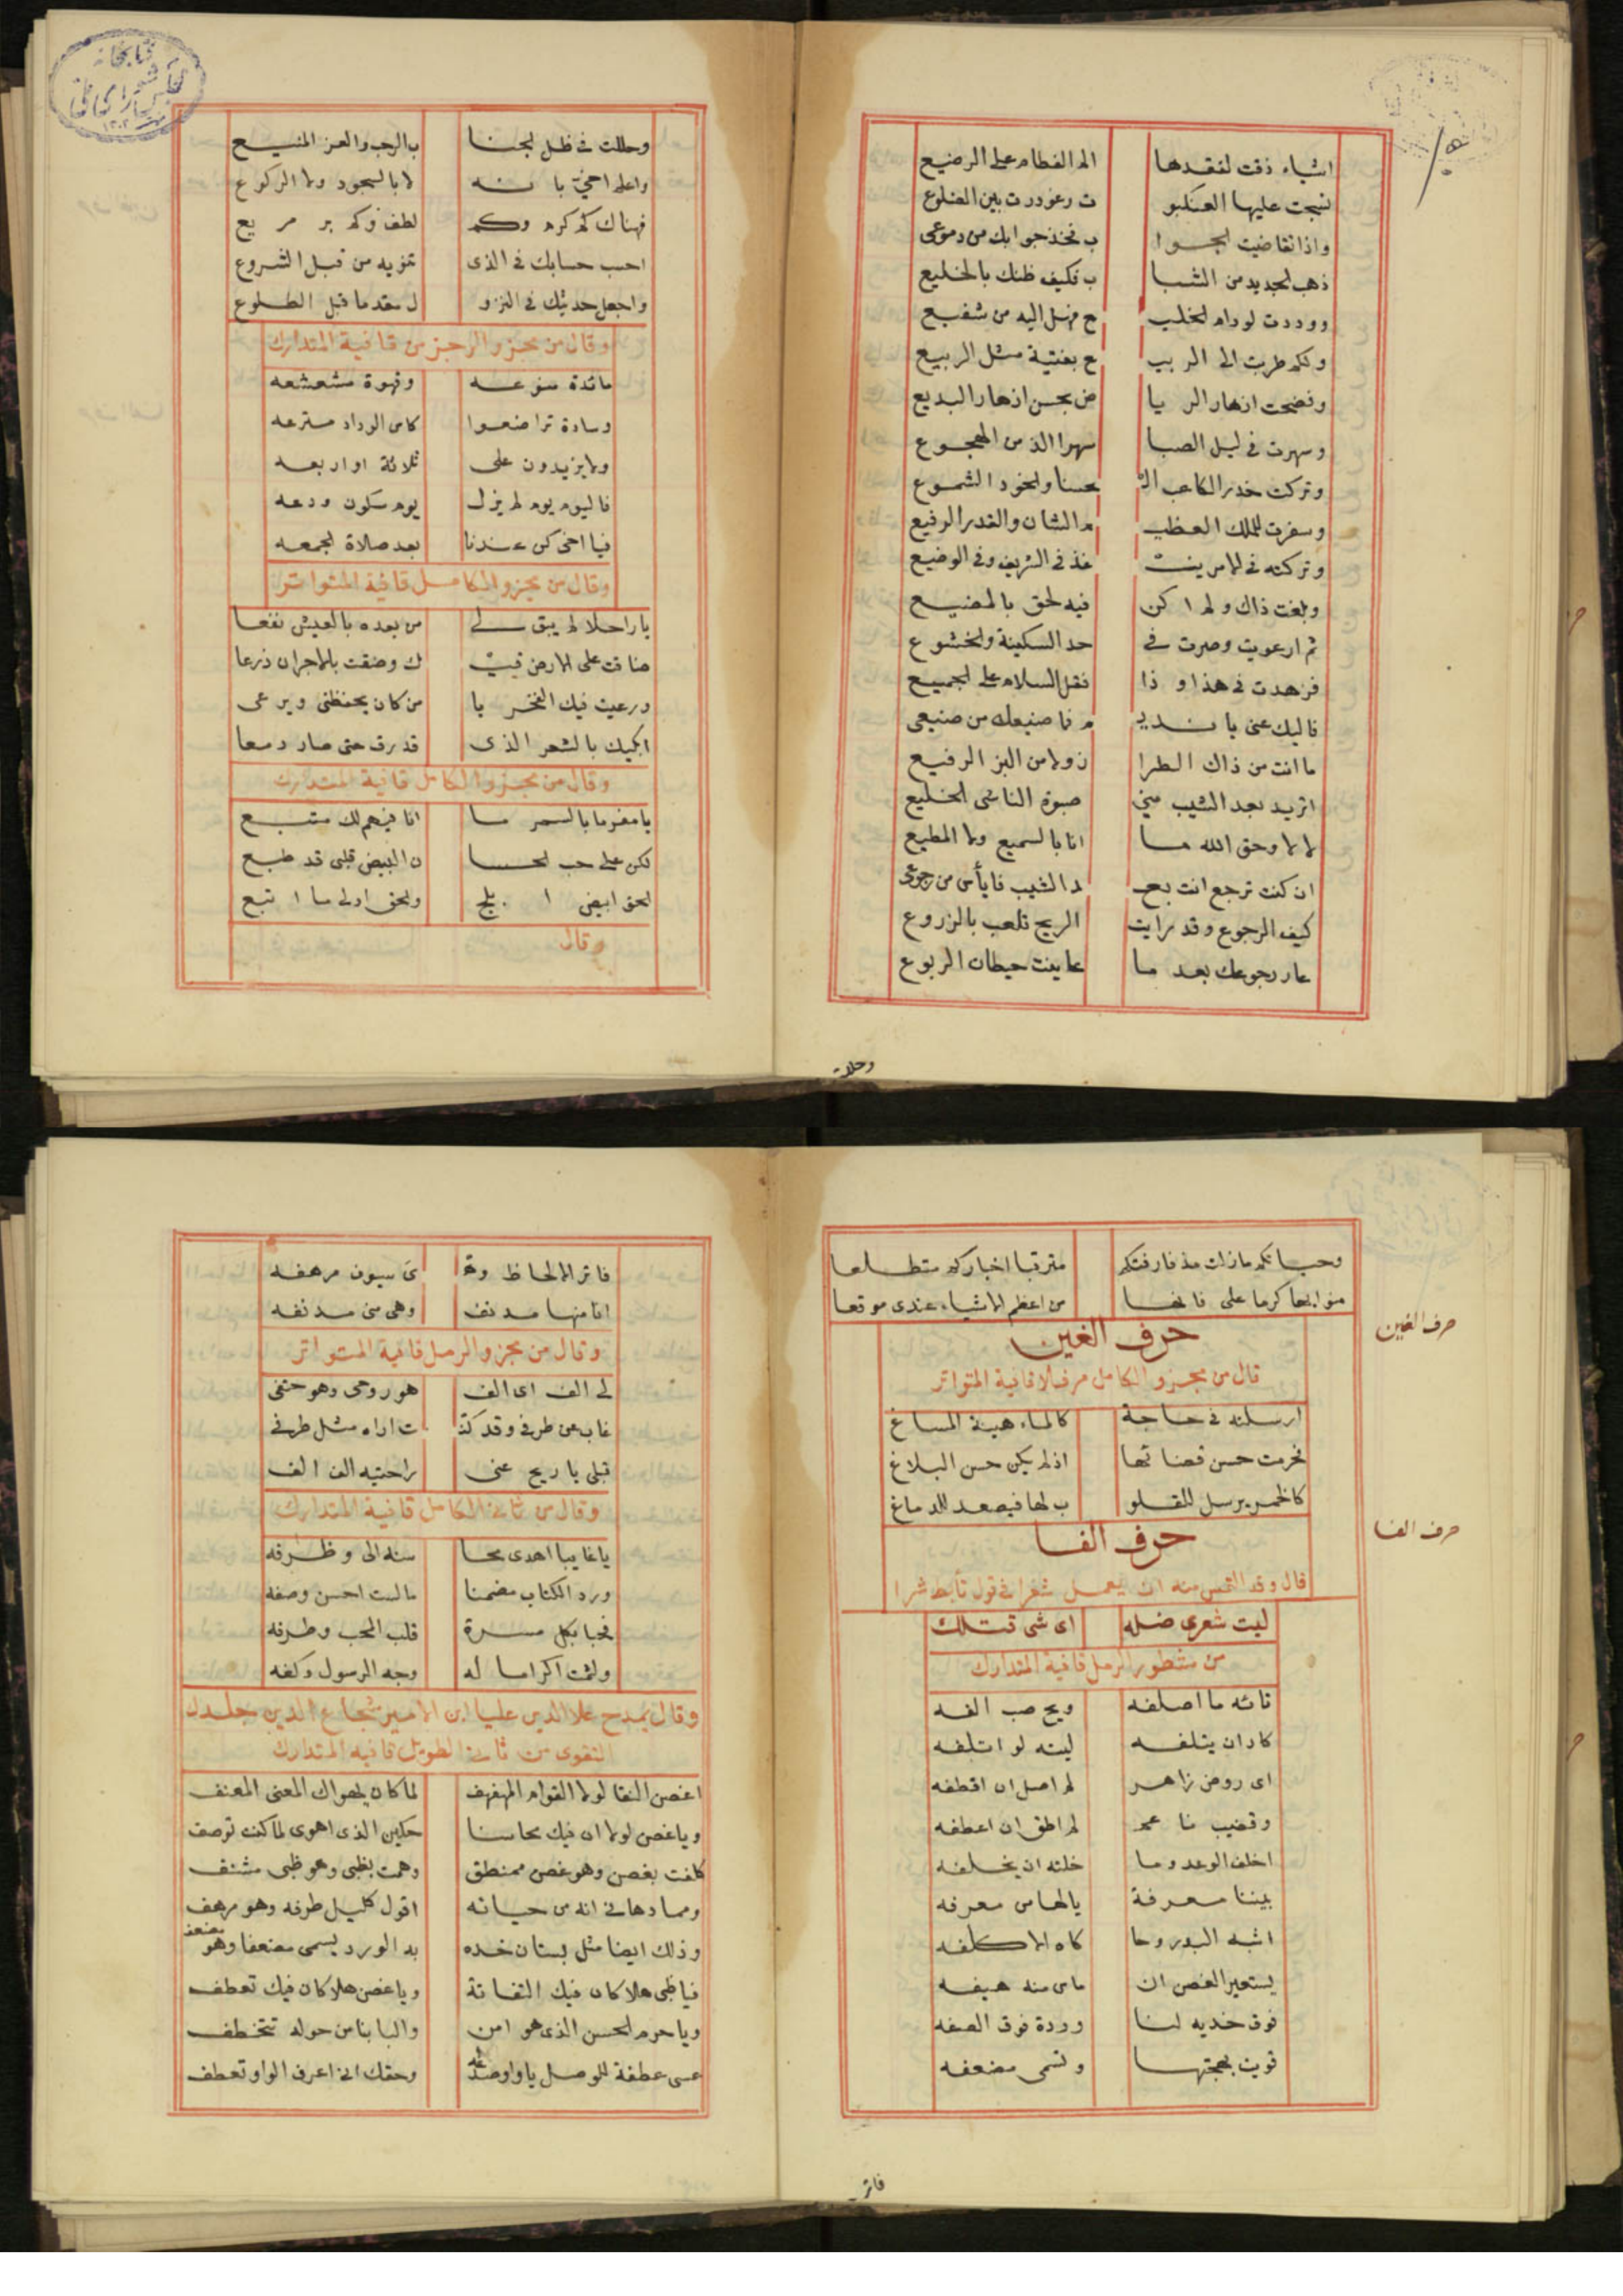 اشياء ذقت لفقدها الم الفطام على الرضيع
نسجت عليها العنكبو ت وغودرت بين الضلوع
واذا تقاضيت الجوا ب فخذ جوابك من دموعى
ذهب الجديد من الشبا ب فكيف ظنك بالخليع
ووددت لو دام الخليـ ع فهل اليه من شفيع
ولكم طربت الى الربيـ ع بفتية مثل الربيع
وفضحت ازهار الريا ض بحسن ازهار البديع
وسهرت فى ليل الصبا سهرا الذ من الهجوع
وتركت خدر الكاعب الـ حسنا والخود الشموع
وسفرت للملك العظيـ م الشان والقدر الرفيع
وتركته فى الامر ينـ فذ فى الشريف وفى الوضيع
وبلغت ذاك ولم اكن فيه لحق بالمضيع
ثم ارعويت وصرت فى حد السكينة والخشوع
فزهدت فى هذا وذا فقل السلام على الجميع
فاليك عنى يا نديـ م فما صنيعك من صنيعى
ما انت من ذاك الطرا ز ولا من البز الرفيع
اتريد بعد الشيب منى صبوة الناشى الخليع
لا لا وحق الله ما انا بالسميع ولا المطيع
ان كنت ترجع انت بعـ د الشيب فايأس من رجوعى
كيف الرجوع وقد رايت الريح تلعب بالزروع
عار رجوعك بعد ما عاينت حيطان الربوع
وحللت
وحللت فى ظل الجنا ب الرحب والعز المنيع
واعلم اخى بانه لا بالسجود ولا الركوع
فهناك كم كرم وكم لطف وكم بر مريع
احب حسابك فى الذى تنويه من قبل الشروع
واجعل حديثك فى النزو ل مقدما قبل الطلوع
وقال من مجزو الرجز من قافية المتدارك
مائدة منوعه وقهوة مشعشعه
وسادة تراضعوا كاس الوداد مترعه
ولا يزيدون على ثلاثة او اربعه
فاليوم يوم لم يزل يوم سكون ودعه
فيا اخى كن عندنا بعد صلاة الجمعه
وقال من مجزو الكامل قافية المتواتر
يا راحلا لم يبق لى من بعده بالعيش نفعا
ضاقت على الارض فيـ ك وضقت بالاجران ذرعا
ورعيت فيك الفخر يا من كان يحفظنى ويرعى
ابكيك بالشعر الذى قد رق حتى صار دمعا
وقال من مجزو الكامل قافية المتدارك
يا مغرما بالسمر ما انا فيهم لك متبع
لكن على حب الحسا ن البيض قلبى قد طبع
الحق ابيض ابلج والحق اولى ما اتبع
وقال
وحياتكم مازلت مذ فارقتكم مترقبا اخباركم متطلعا
منوا بها كرما على فانها من اعظم الاشياء عندى موقعا
حرف الغين
حرف الغين
قال من مجزو الكامل مرفلا قافية المتواتر
ارسلته فى حاجة كالماء هينة المساغ
فحرمت حسن قضائها اذ لم يكن حسن البلاغ
كالخمر يرسل للقلو ب لها فيصعد للدماغ
حرف الفا
حرف الفا
قال وقد التمس منه ان يعمل شعرا فى قول تأبط شرا
ليت شعرى ضله اى شى قتلك
من مشطور الرمل قافية المتدارك
تائه ما اصلفه ويح صب الفه
كاد ان يتلفه ليته لو اتلفه
اى روض زاهر لم اصل ان اقطفه
وقضيب ناعم لم اطق ان اعطفه
اخلف الوعد وما خلته ان يخلفه
بيننا معرفة يا لها من معرفه
اشبه البدر وحا كاه الا كلفه
يستعير الغصن ان ماس منه هيفه
فوق خديه لنا وردة فوق الصفه
قويت بهجتها وتسمى مضعفه
فاتر
فاتر الالحاظ وهـ ى سيوف مرهفه
انا منها مدنف وهى منى مدنفه
وقال من مجزو الرمل قافية المتواتر
لى الف اى الف هو روحى وهو حتفى
غاب عن طرفى وقد كنـ ت اراه مثل طرفى
قبلى يا ريح عنى راحتيه الف الف
وقال من ثانى الكامل قافية المتدارك
يا غايبا اهدى محا سنه الى وظرفه
ورد الكتاب مضمنا ما لست احسن وصفه
فحبا بكل مسرة قلب المحب وطرفه
ولثمت اكراما له وجه الرسول وكفه
وقال يمدح علا الدين عليا ابن الامير شجاع الدين جلدك
التقوى من ثانى الطويل قافيه المتدارك
اغصن النقا لولا القوام المهفهف لما كان يهواك المعنى المعنف
ويا غصن لولا ان فيك محاسنا حكين الذى اهوى لما كنت توصف
كلفت بغصن وهو غصن ممنطق وهمت بظبى وهو ظبى مشنف
ومما دهانى انه من حيائه اقول كليل طرفه وهو مرهف
وذلك ايضا مثل بستان خده به الورد يسمى مضعفا وهو مضعف
فيا ظبى هلا كان فيك التفاتة ويا غصن هلا كان فيك تعطف
ويا حرم الحسن الذى هو امن والبابنا من حوله تتخطف
عسى عطفة للوصل يا واو صدغه وحقك انى اعرف الواو تعطف